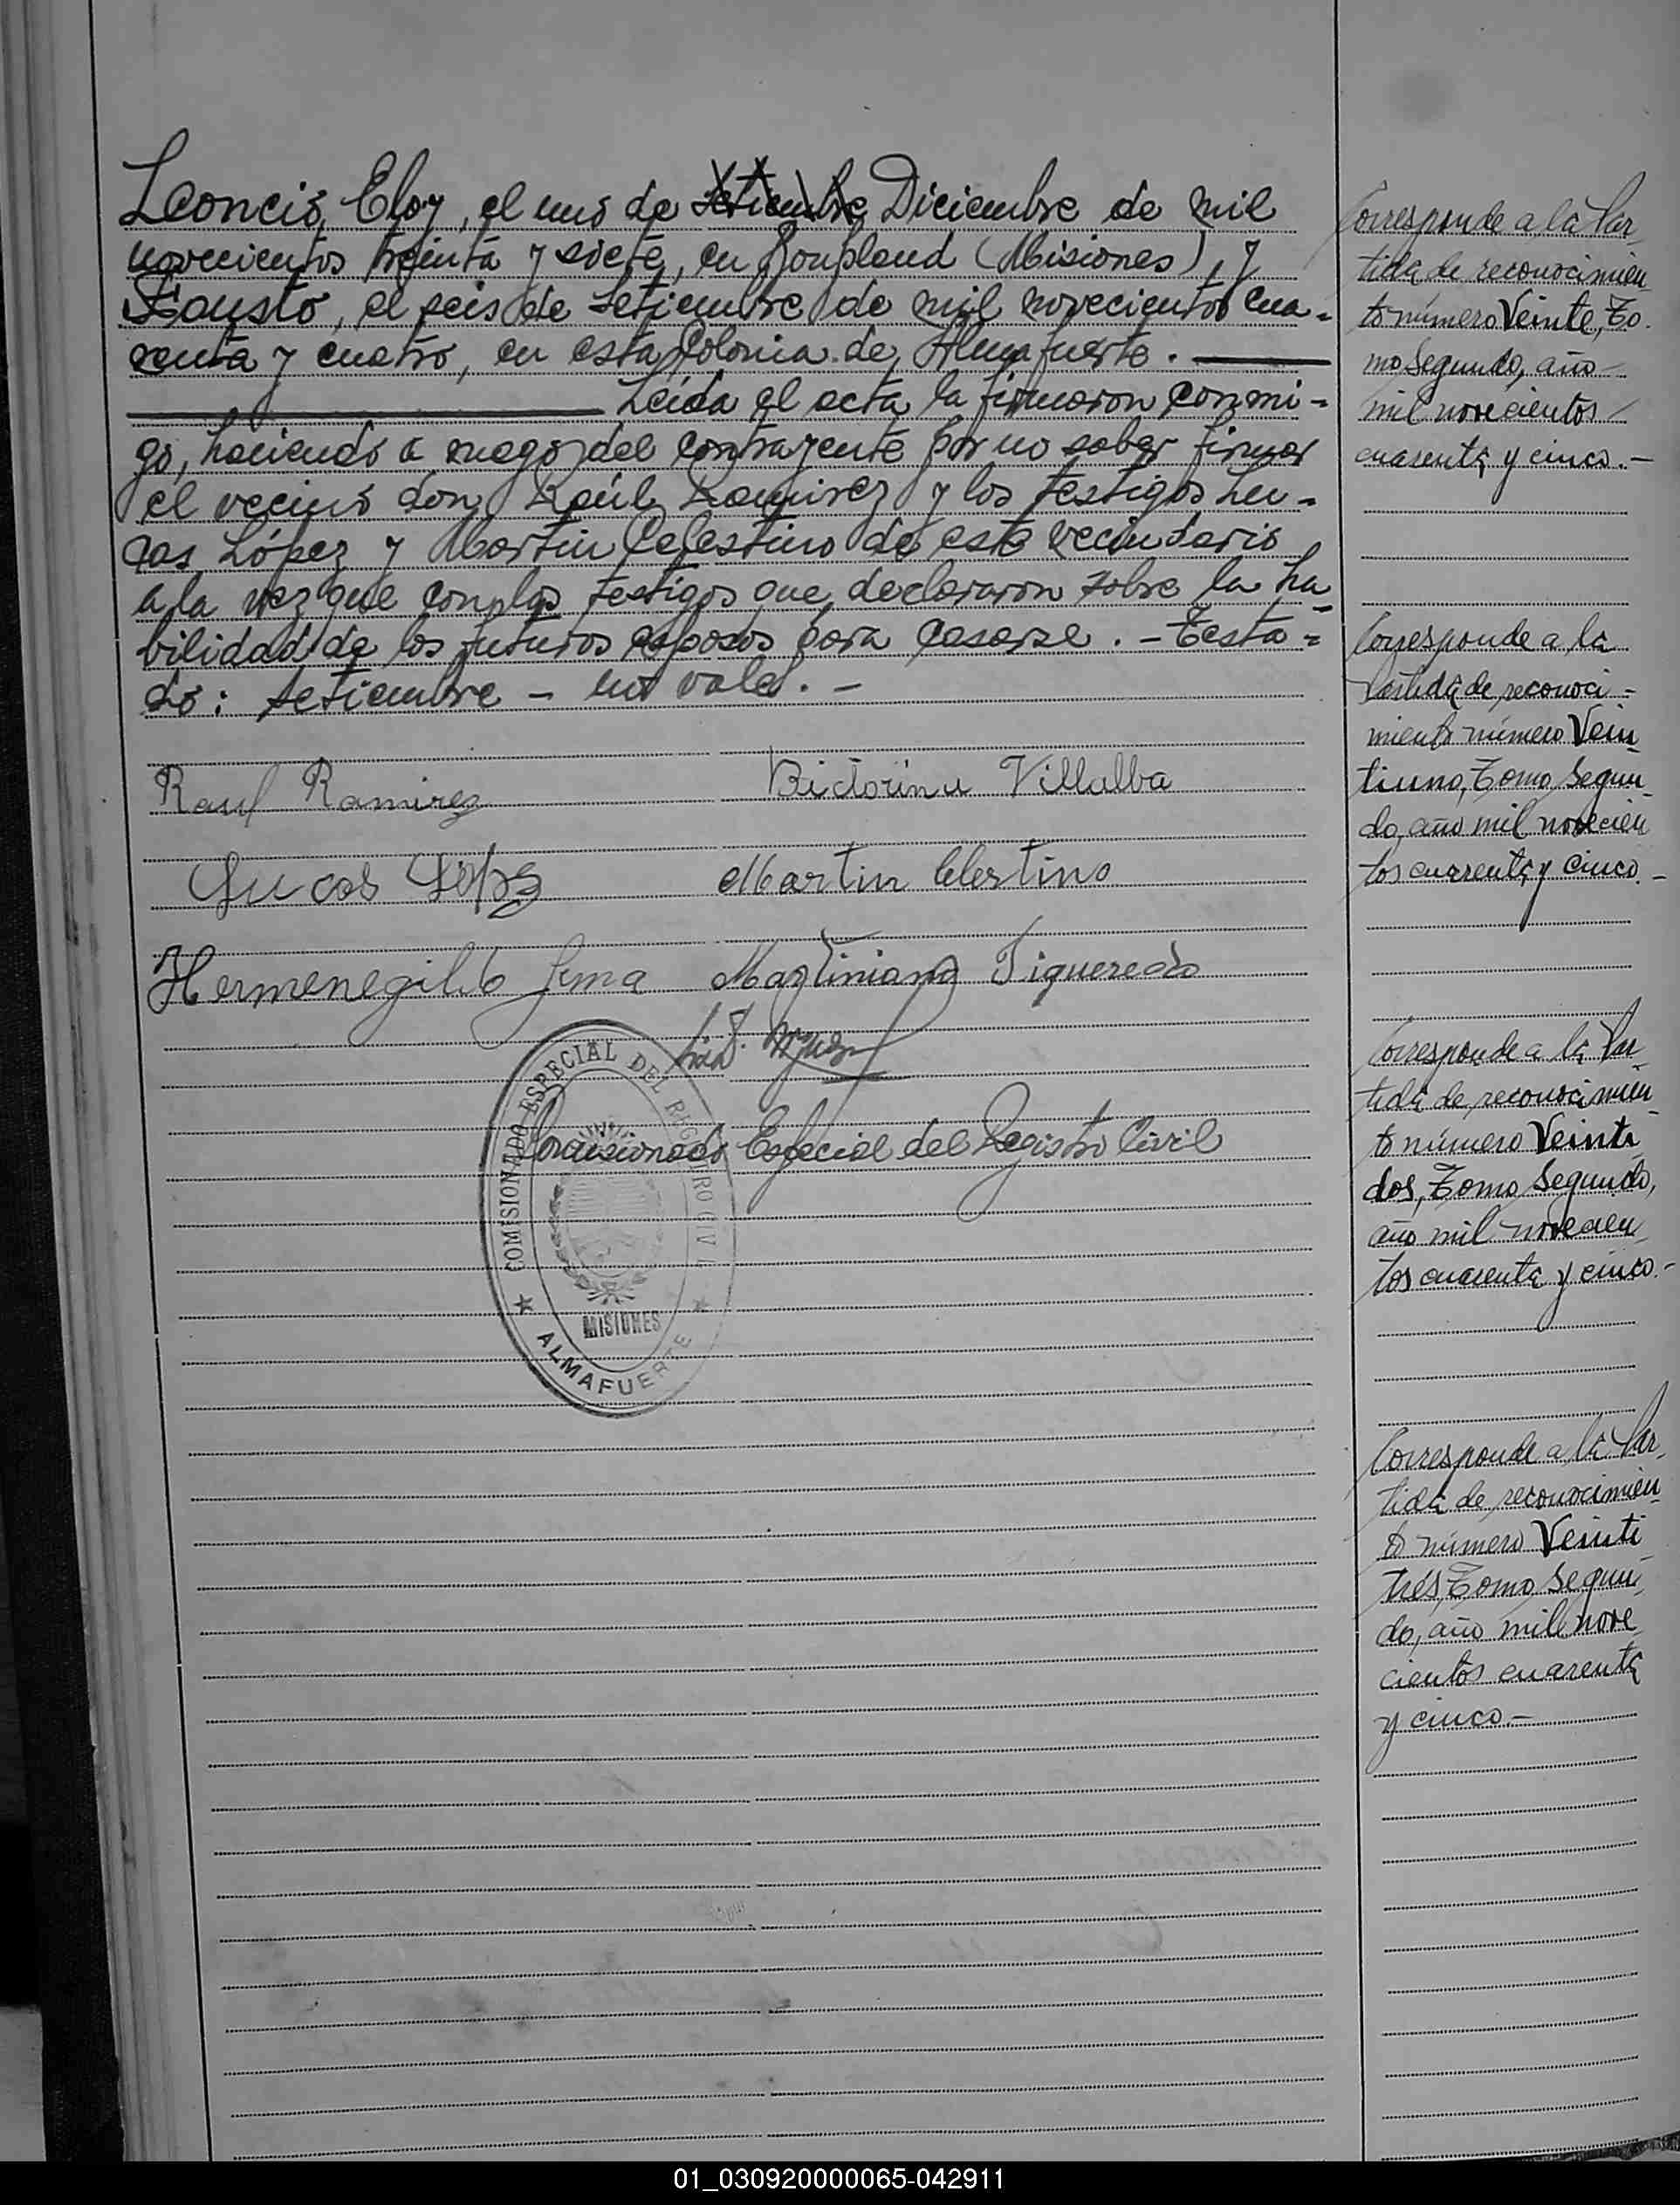 Leoncio Eloy, el uno de setiembre Diciembre de mil
novecientos treinta y siete, en Bonpland (Misiones), y
Fausto, el seis de setiembre de mil novecientos cua-
renta y cuatro, en esta Colonia de Almafuerte. —
— Leída el acta la firmaron conmi-
go, haciendo a ruego del contrayente por no saber firmar
el vecino don Raúl Ramirez y los testigos Lu-
cas López y Martin Celestino de este vecindario
a la vez que con los testigos que declararon sobre la ha-
bilidad de los futuros esposos para casarse. - Testa-
do: setiembre - no vale. -
Raul Ramirez Victorina Villalba
Lucas López Martin Celestino
Hermenegildo Martiniano Figueredo
Comisionado Especial del Registro Civil
COMISIONADO ESPECIAL DEL REGISTRO CIVIL
MISIONES
ALMAFUERTE
Corresponde a la Par-
tida de reconocimien-
to número Veinte, To-
mo Segundo, año
mil novecientos
cuarenta y cinco.-
Corresponde a la
Partida de reconoci-
miento número Vein-
tiuno, Tomo Segun-
do, año mil novecien-
tos cuarenta y cinco.-
Corresponde a la Par-
tida de reconocimien-
to número Veinti-
dos, Tomo Segundo,
año mil novecien-
tos cuarenta y cinco.-
Corresponde a la Par-
tida de reconocimien-
to número Veinti-
trés, Tomo Segun-
do, año mil nove-
cientos cuarenta
y cinco.-
01_030920000065-042911